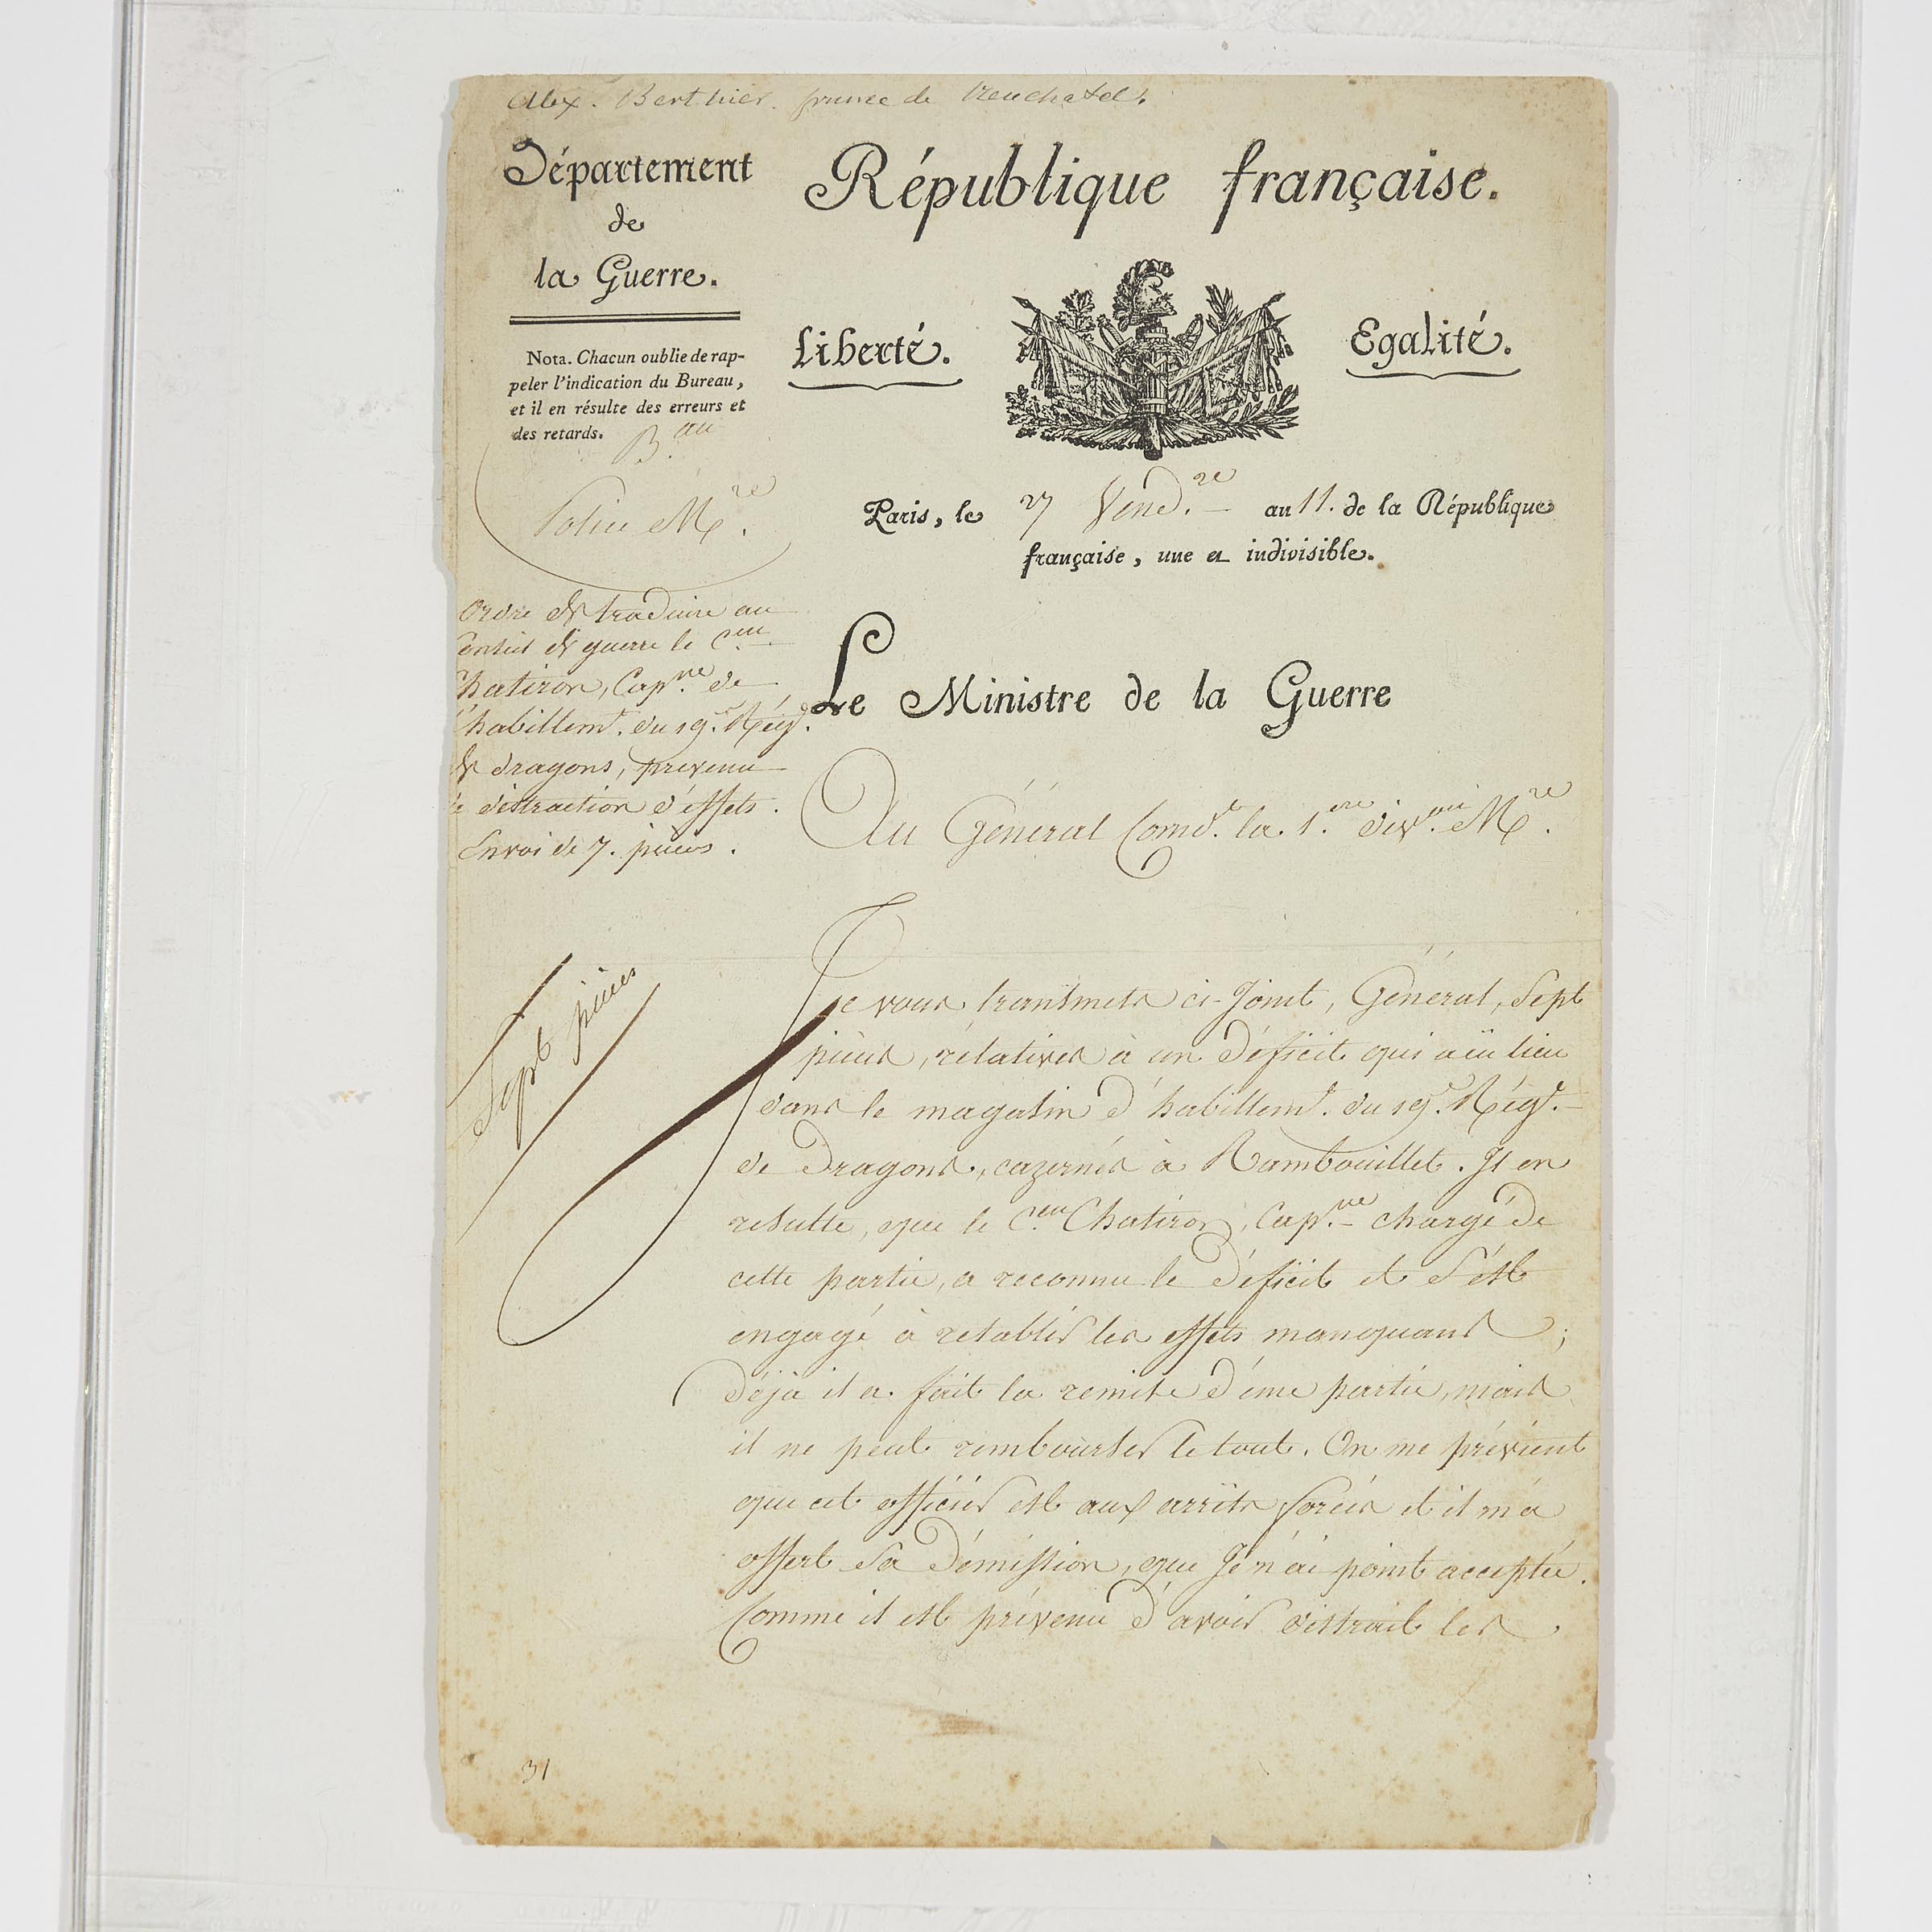 Alex. Berthier. prince de Neuchatel.
Département
de
la Guerre.
République française.
Liberté.
Egalité.
Nota. Chacun oublie de rap-
peler l'indication du Bureau,
et il en résulte des erreurs et
des retards.
B.au
Police M.re
Paris, le 27 Vend.re an 11. de la République
française, une et indivisible.
Ordre de traduire au
Conseil de guerre le C.en
Chatiron, Cap.ne de
l'habillem.t du 19.e Régt.
de dragons, prevenu
de distraction d'effets.
Envoi de 7. pièces.
Le Ministre de la Guerre
Au Général Comd.t la 1.ere div.on M.re
Sept pièces
Je vous transmets ci-Joint, Général, Sept
pièces, rélatives à un Déficit qui a eu lieu
dans le magasin d'habillem.t du 19.e Régt.
de Dragons, cazernés à Rambouillet. Il en
résulte, que le C.en Chatiron, Cap.ne chargé de
cette partie, a reconnu le Déficit et s'est
engagé à rétablir les effets manquans;
Déjà il a fait la remise d'une partie, mais
il ne peut rembourser le tout. On me prévient
que cet officier est aux arrêts forcés et il m'a
offert sa Démission, que Je n'ai point acceptée.
Comme il est prévenu d'avoir distrait les
31